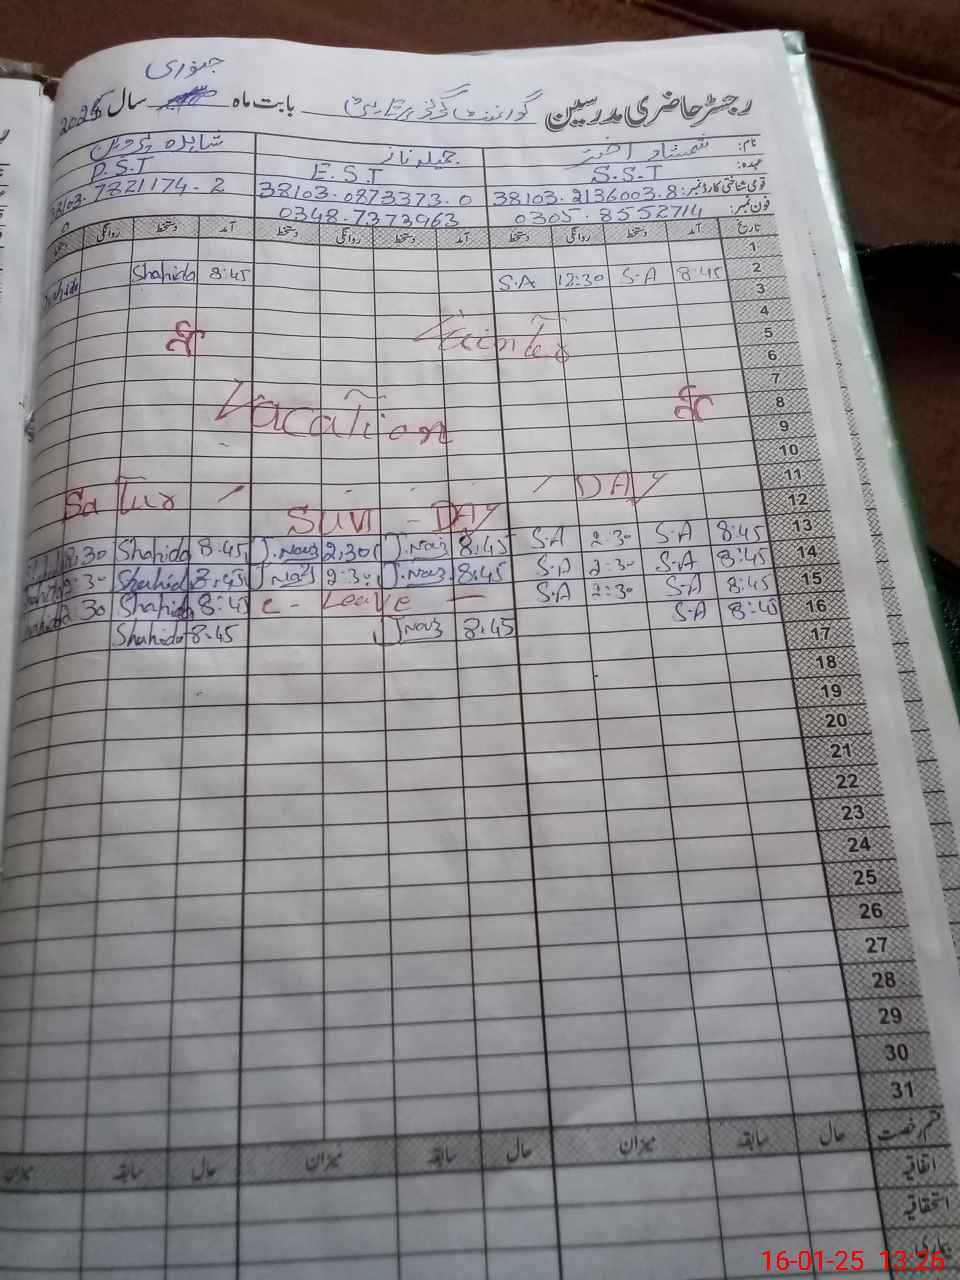 جنوری
رجسٹر حاضری مدرسین گورنمنٹ گرلز بابت ماہ سال 2025
نام: شمشاد اختر جمیلہ ناز شاہدہ پروین
عہدہ: S.S.T E.S.T P.S.T
قومی شناختی کارڈ نمبر: 38103.2136003.8 38103.0873373.0 7821174-2
فون نمبر: 0305.8552714 0348.7373963
تاریخ آمد دستخط روانگی دستخط آمد دستخط روانگی دستخط آمد دستخط روانگی دستخط
1
2 8:45 S.A 12:30 S.A 8:45 Shahida
3
4
5 Winter
6
7
8
9 Vacation
10
11 Satur - DAY
12 SUN - DAY
13 8:45 S.A 2:30 S.A 8:45 J.Naz 2:30 J.Naz 8:45 Shahida 2:30
14 8:45 S.A 2:30 S.A 8:45 J.Naz 2:30 J.Naz 8:45 Shahida 2:30
15 8:45 S.A 2:30 S.A C - Leave - 8:45 Shahida 2 30
16 8:45 S.A 8:45 J.Naz 8:45 Shahida
17
18
19
20
21
22
23
24
25
26
27
28
29
30
31
قسم رخصت حال سابقہ میزان حال سابقہ میزان حال سابقہ میزان
اتفاقیہ
استحقاقیہ
16-01-25 13:26